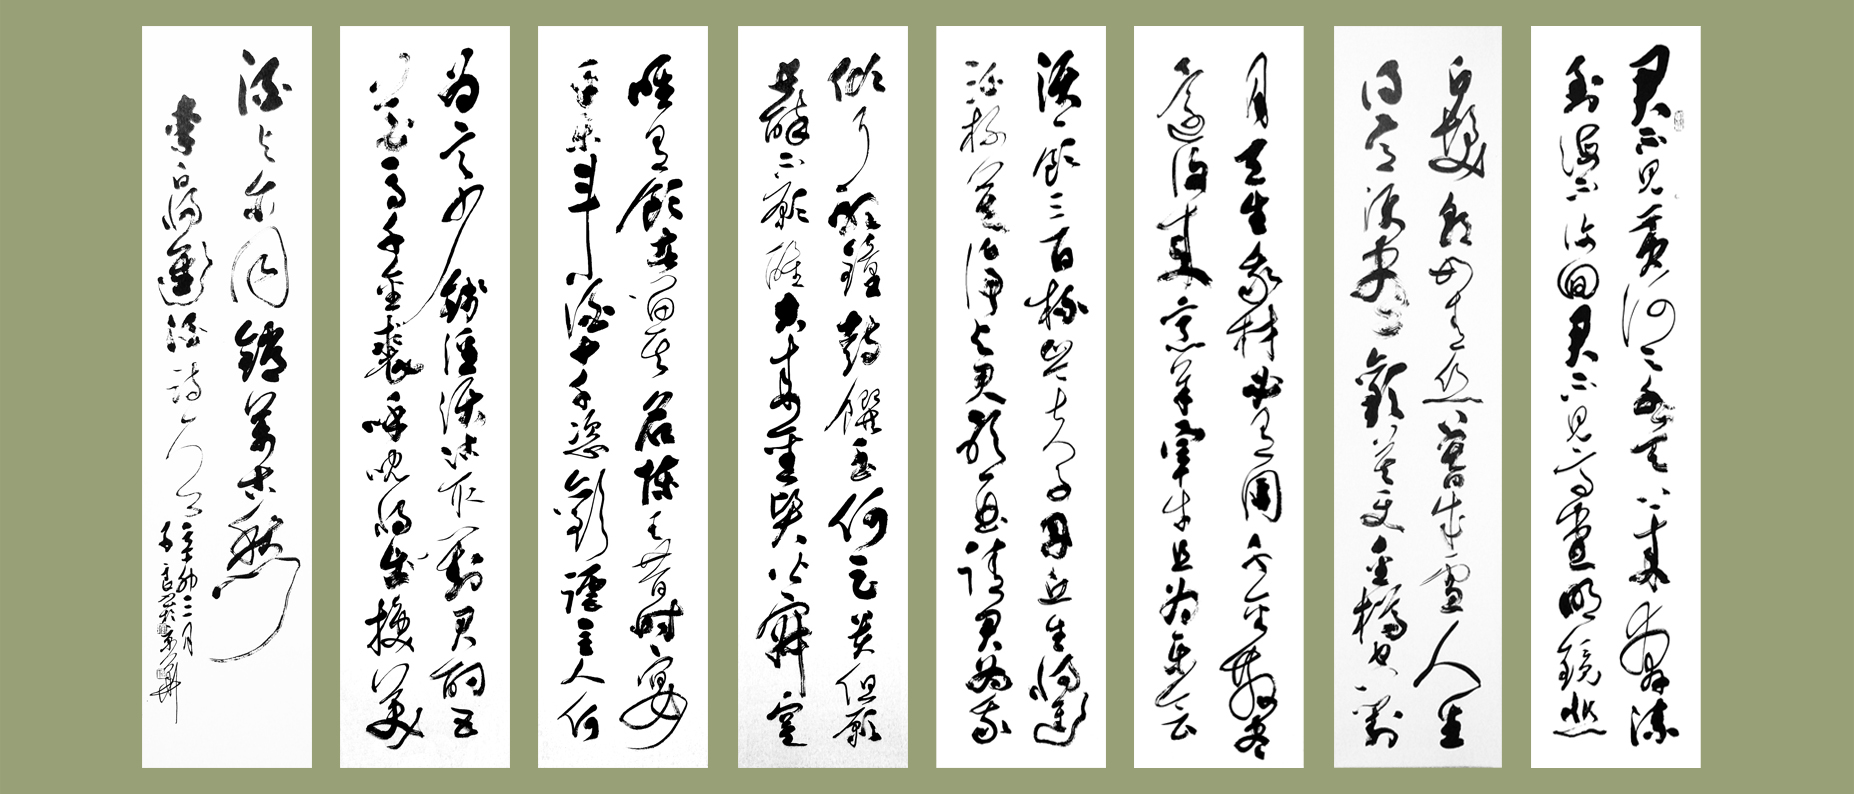 君不見黃河之水天上來奔流
到海不復回君不見高堂明鏡悲
白髮朝如青絲暮成雪人生
得意須盡歡莫使金樽空對
月天生我材必有用千金散盡
還復來烹羊宰牛且為樂會
須一飲三百杯岑夫子丹丘生將進
酒杯莫停與君歌一曲請君為我
傾耳聽鐘鼓饌玉何足貴但願
長醉不願醒古來聖賢皆寂寞
惟有飲者留其名陳王昔時宴
平樂斗酒十千恣歡謔主人何
為言少錢徑須沽取對君酌五
花馬千金裘呼兒將出換美
酒與爾同銷萬古愁
李白將進酒詩一首
辛卯三月